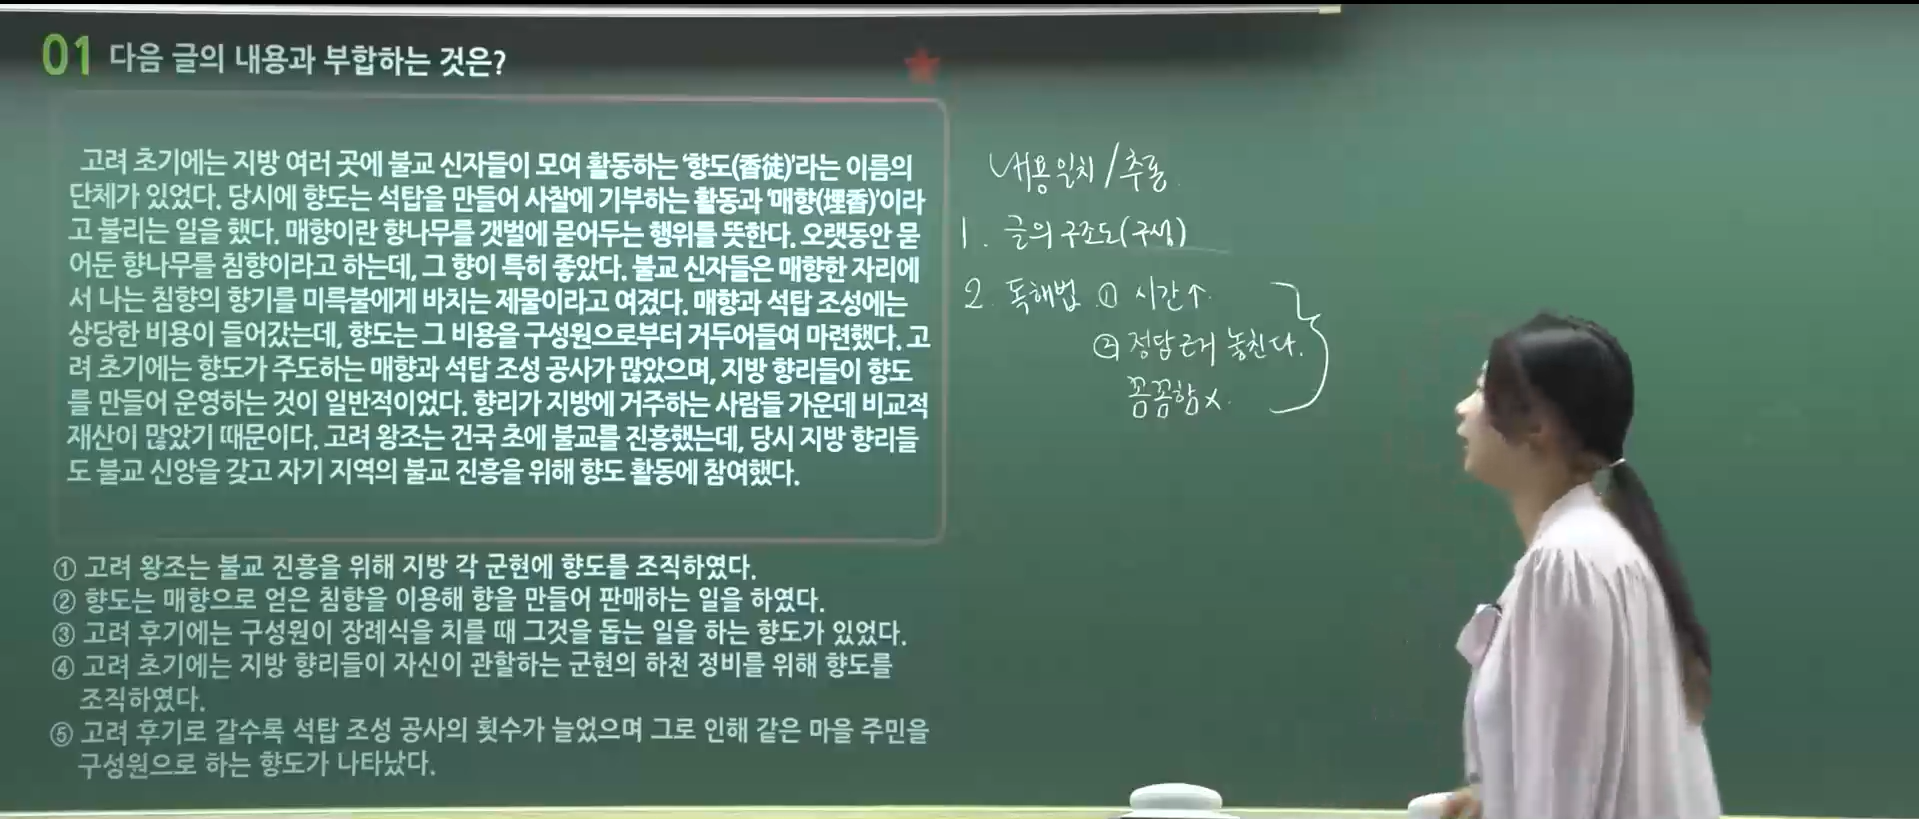 01 다음 글의 내용과 부합하는 것은?
고려 초기에는 지방 여러 곳에 불교 신자들이 모여 활동하는 ‘향도(香徒)’라는 이름의
단체가 있었다. 당시에 향도는 석탑을 만들어 사찰에 기부하는 활동과 ‘매향(埋香)’이라
고 불리는 일을 했다. 매향이란 향나무를 갯벌에 묻어두는 행위를 뜻한다. 오랫동안 묻
어둔 향나무를 침향이라고 하는데, 그 향이 특히 좋았다. 불교 신자들은 매향한 자리에
서 나는 침향의 향기를 미륵불에게 바치는 제물이라고 여겼다. 매향과 석탑 조성에는
상당한 비용이 들어갔는데, 향도는 그 비용을 구성원으로부터 거두어들여 마련했다. 고
려 초기에는 향도가 주도하는 매향과 석탑 조성 공사가 많았으며, 지방 향리들이 향도
를 만들어 운영하는 것이 일반적이었다. 향리가 지방에 거주하는 사람들 가운데 비교적
재산이 많았기 때문이다. 고려 왕조는 건국 초에 불교를 진흥했는데, 당시 지방 향리들
도 불교 신앙을 갖고 자기 지역의 불교 진흥을 위해 향도 활동에 참여했다.
① 고려 왕조는 불교 진흥을 위해 지방 각 군현에 향도를 조직하였다.
② 향도는 매향으로 얻은 침향을 이용해 향을 만들어 판매하는 일을 하였다.
③ 고려 후기에는 구성원이 장례식을 치를 때 그것을 돕는 일을 하는 향도가 있었다.
④ 고려 초기에는 지방 향리들이 자신이 관할하는 군현의 하천 정비를 위해 향도를
조직하였다.
⑤ 고려 후기로 갈수록 석탑 조성 공사의 횟수가 늘었으며 그로 인해 같은 마을 주민을
구성원으로 하는 향도가 나타났다.
내용일치 / 추론
1. 글의 구조도(구성)
2. 독해법 ① 시간↑.
② 정답 근거 놓친다.
꼼꼼함 x.